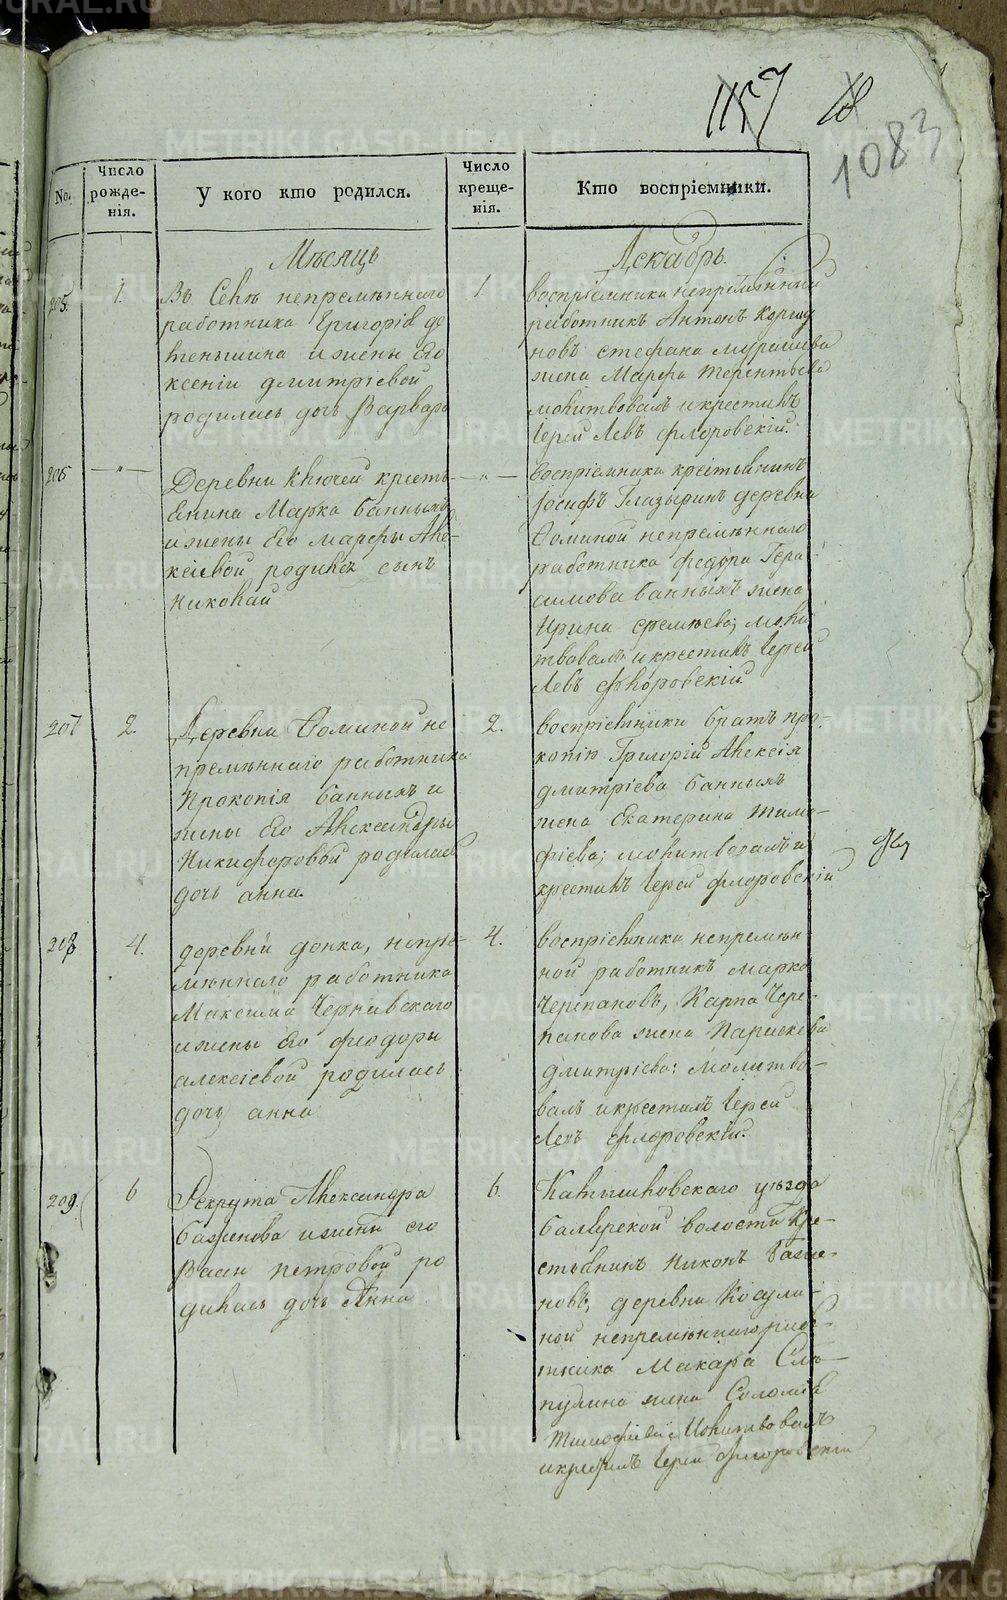 1157
1083
No.
Число рожде-нія.
У кого кто родился.
Число креще-нія.
Кто воспріемники.
Мѣсяцъ
Декабрь.
205.
1.
Въ Селѣ непремѣннаго
работника Григорія
и жены Его
ксеніи дмитріевой
родилась дочь Варвара
1
воспріемники непремѣнный
работникъ Антонъ Коршу
новъ стефана мурашева
жена Марфа терентьева
молитвовалъ и крестилъ
Іерей Левъ флоровскій.
206
— " —
Деревни Ключей кресть
янина Марка банныхъ
и жены Его марфы Але-
ксіевой родился сынъ
николай
— " —
Воспріемники крестьянинъ
Іосифъ Глазыринъ деревни
Ѳоминой непремѣннаго
работника федора Гера-
симова банныхъ жена
Ирина еремѣева; моли
твовалъ и крестилъ Іерей
Левъ флоровскій.
207
2.
Деревни Ѳоминой не
премѣннаго работника
Прокопія банныхъ и
жены Его Александры
Никифоровой родилась
дочь анна.
2.
воспріемники братъ про-
копія Григорій Алексія
дмитріева банныхъ
жена Екатерина тимо-
фіева; молитвовалъ и
крестилъ Іерей флоровскій
208
4.
деревни донка, непре-
мѣннаго работника
Максима Чернавскаго
и жены Его феодоры
алексіевой родилась
дочь анна
4.
воспріемники непремѣн
ной работникъ марко
Черепановъ, Карпа Чере-
панова жена Параскева
дмитріева: молитво-
валъ и крестилъ Іерей
Левъ флоровскій.
209.
6
Рекрута Александра
баженова и жены его
Васы петровой ро
дилась дочь Анна
6.
Камышловскаго уѣзда
волости Кре-
стьянинъ никонъ баже-
новъ, деревни Косули-
ной непремѣннаго рабо-
тника Макара Слѣ-
пухина жена Соломія
тимофіева молитвовалъ
и крестилъ Іерей флоровскій
METRIKI.GASO-URAL.RU